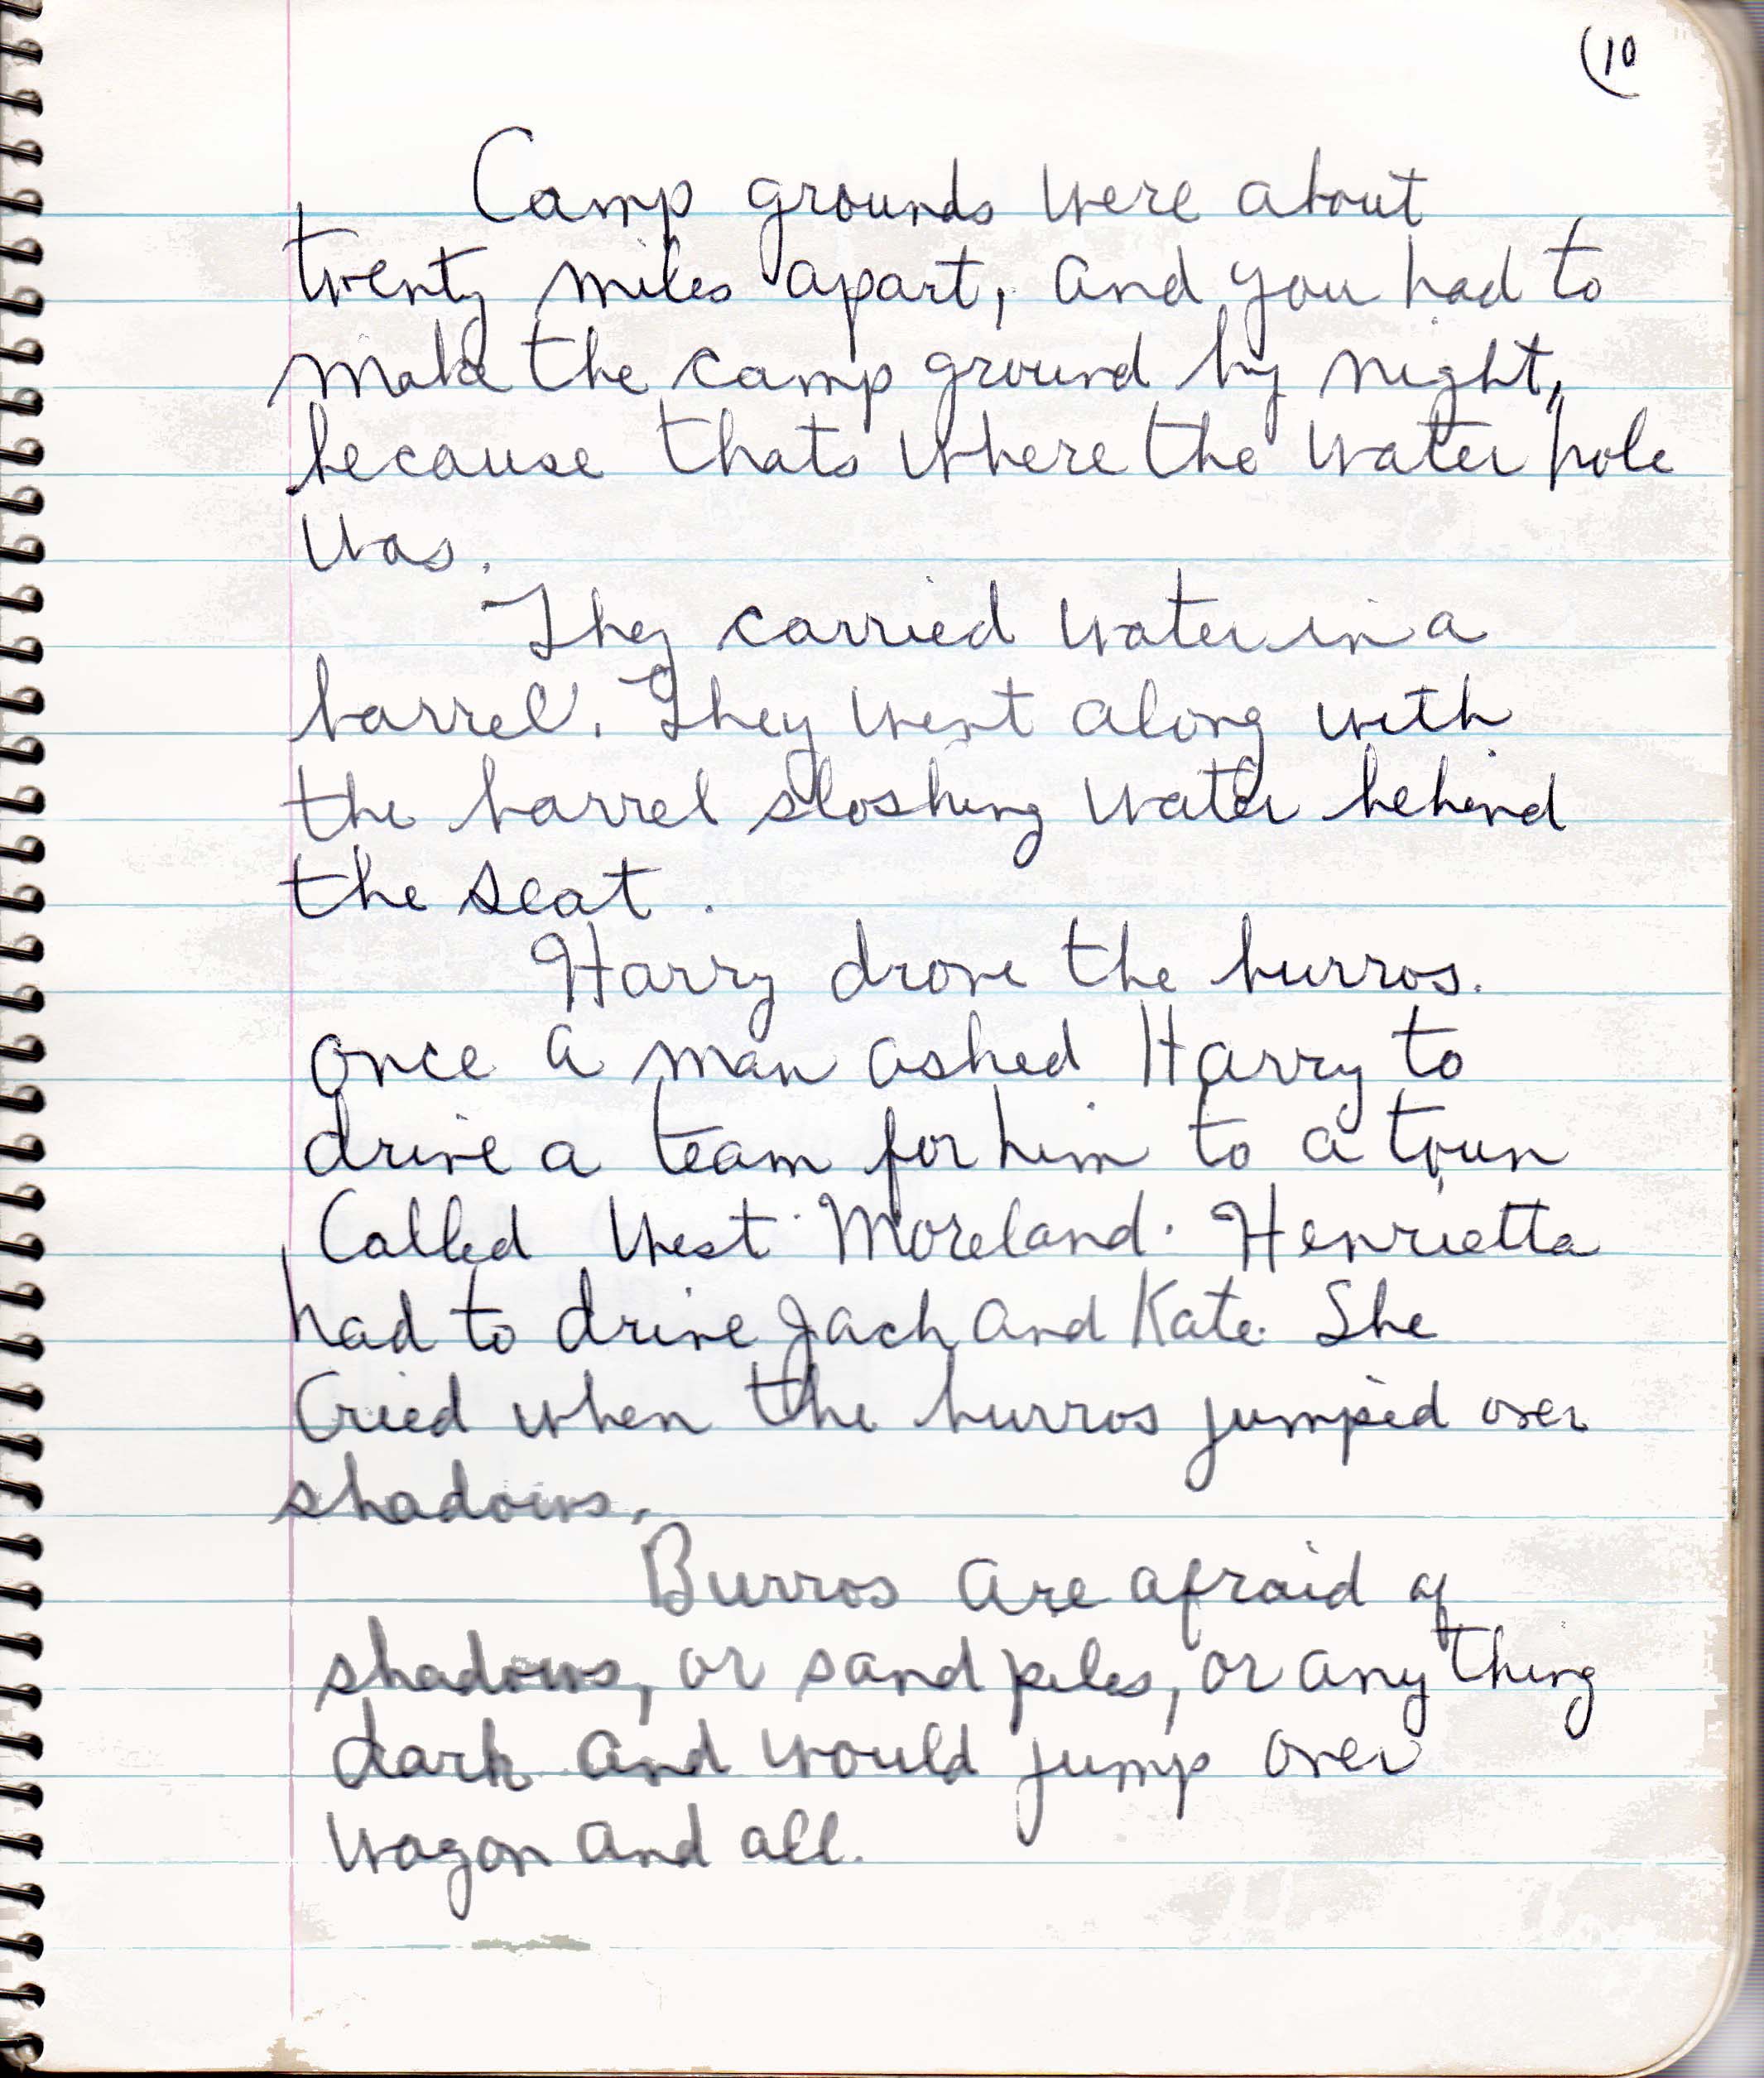 (10
Camp grounds were about
twenty miles apart, and you had to
make the camp ground by night,
because thats where the water hole
was.
They carried water in a
barrel. They went along with
the barrel sloshing water behind
the seat.
Harry drove the burros.
once a man asked Harry to
drive a team for him to a town
Called West Moreland. Henrietta
had to drive Jack and Kate. She
Cried when the burros jumped over
shadows.
Burros are afraid of
shadows, or sand piles, or any thing
dark and would jump over
wagon and all.